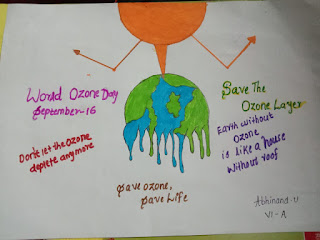 World Ozone Day
September-16
Save The
Ozone Layer
Don't let the Ozone
deplete anymore
Earth without
Ozone
is like a house
without roof
Save ozone,
Save Life
Abhinand.U
VI-A